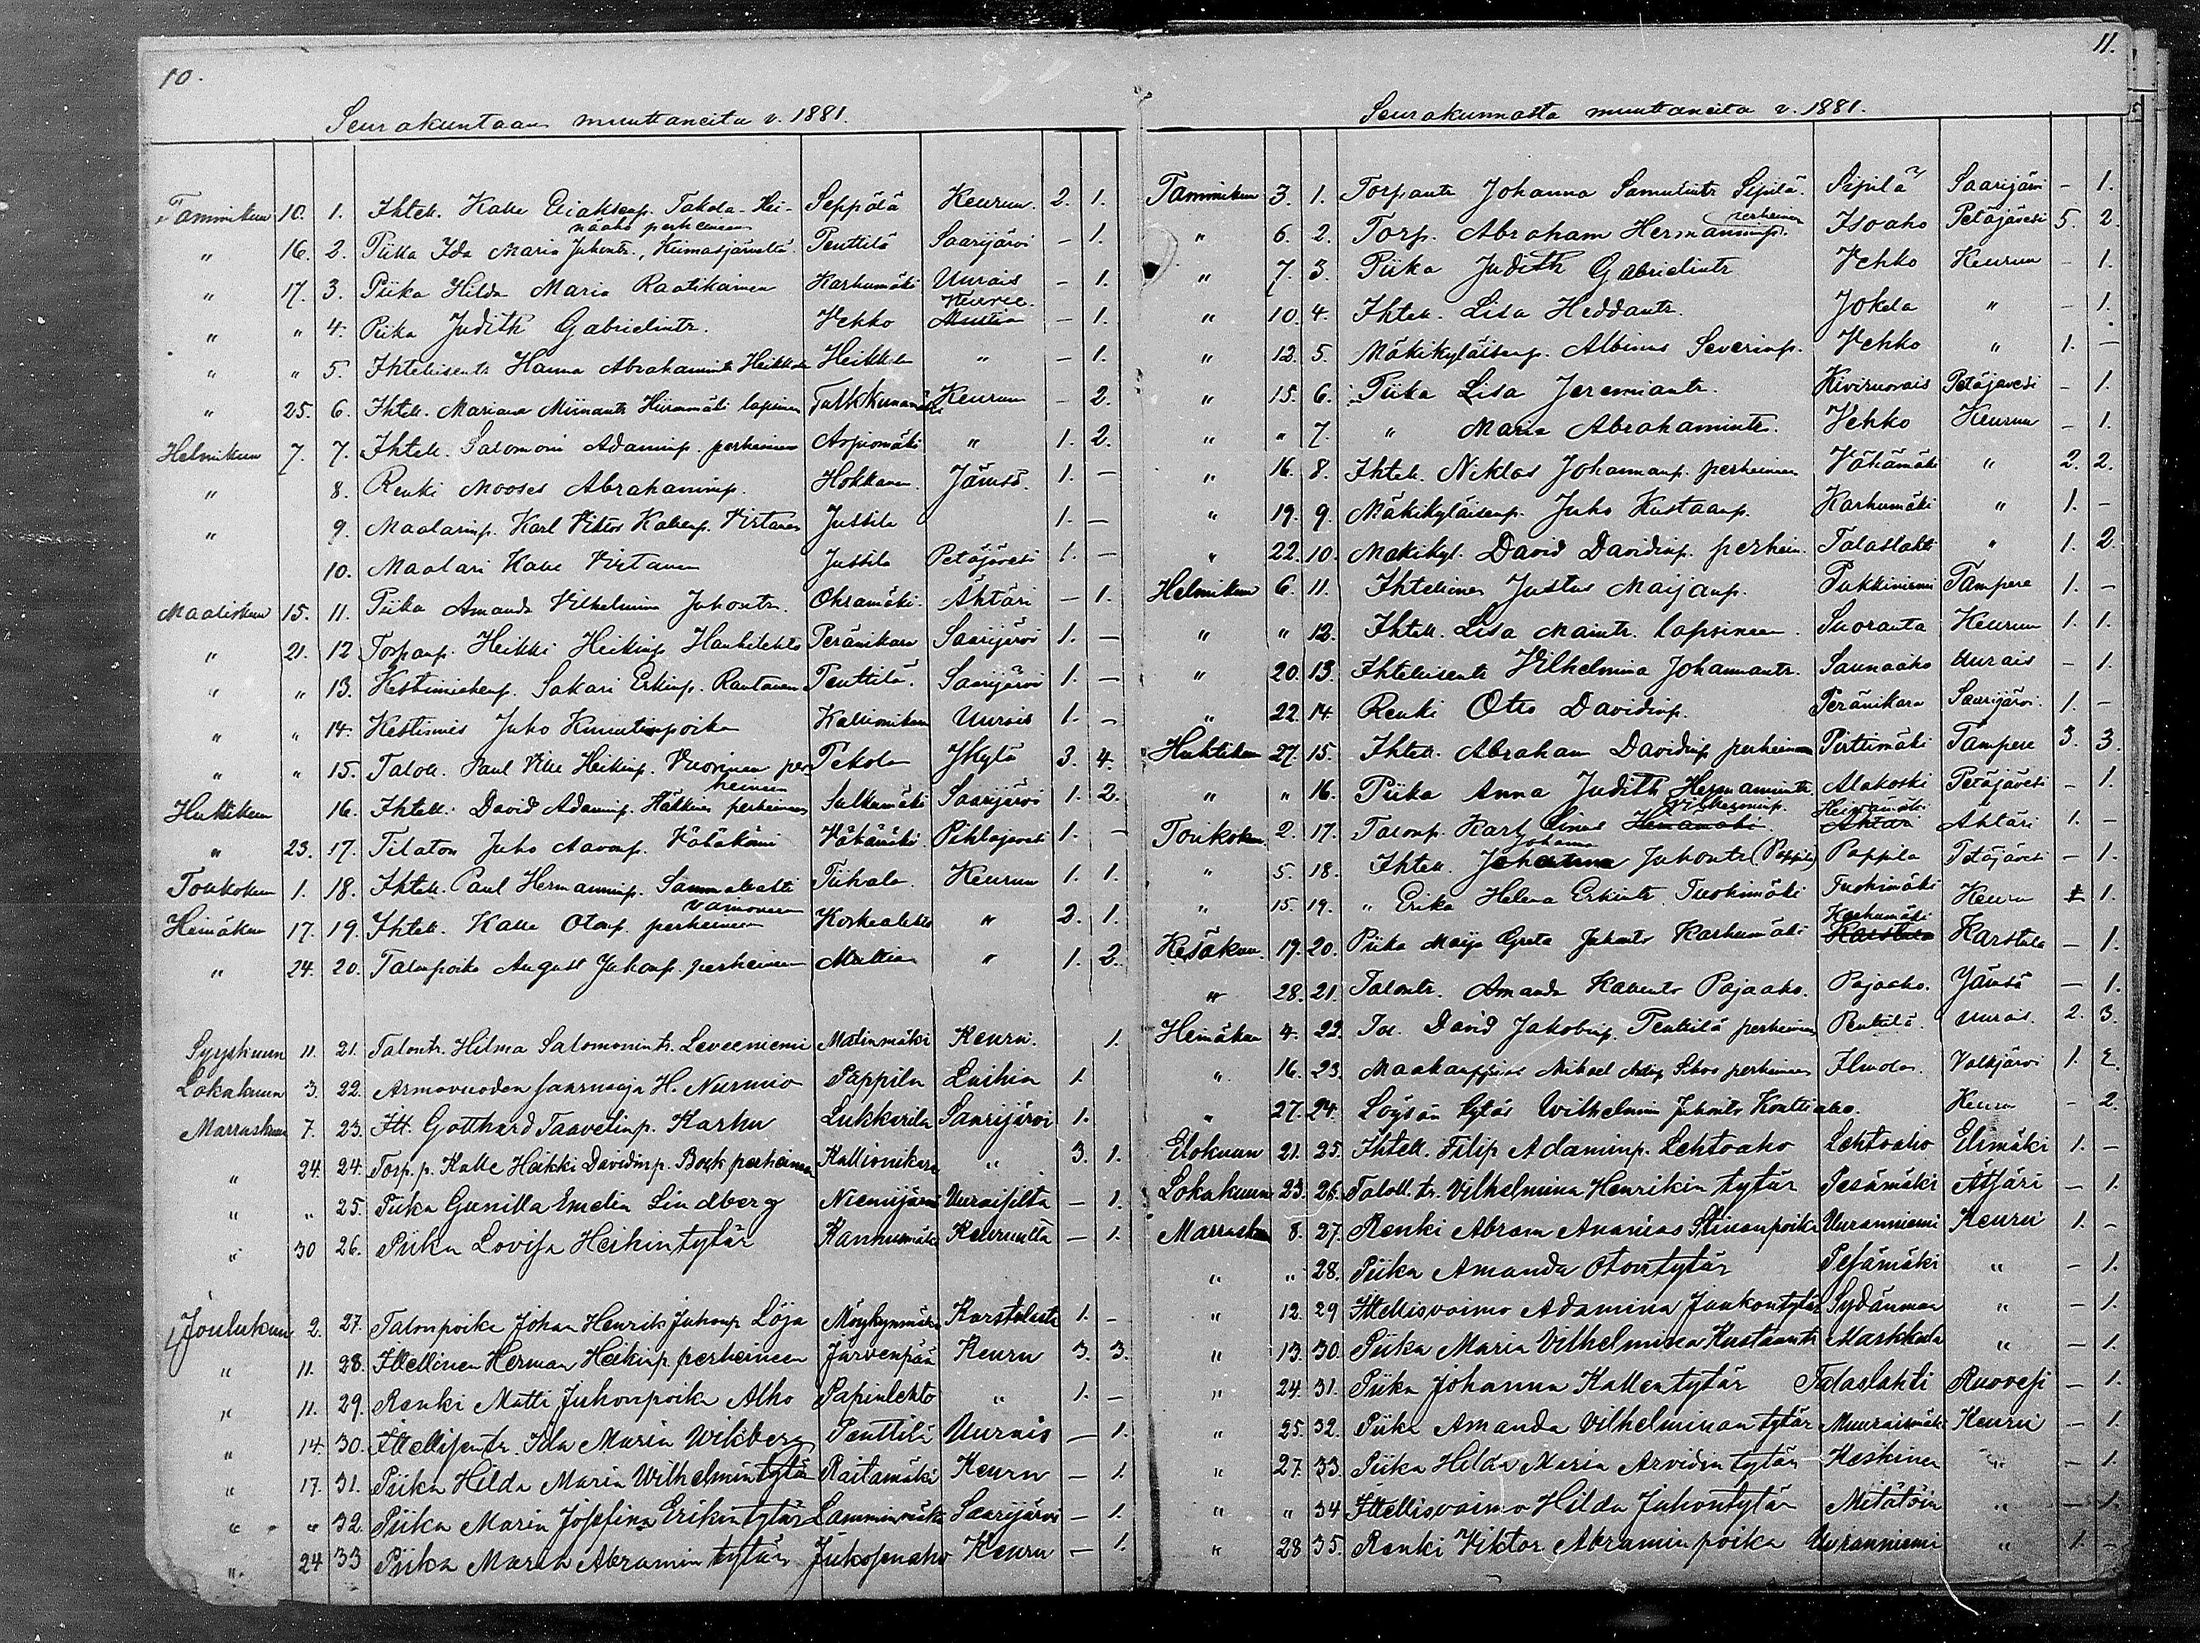 10.
Seurakuntaan muuttaneita v. 1881.
Tammikun 10. 1. Ihtell. Kalle Takola-Hei- Seppälä Keuruu. 2. 1.
näaho perheineen
" 16. 2. Piika Ida Maria Juhontr., Kiimasjärveltä Penttilä Saarijärvi — 1.
" 17. 3. Piika Hilda Maria Raatikainen Karhumäki Uurais — 1.
Keuruu.
" " 4. Piika Judith Gabrielintr. Vehko Multia — 1.
" " 5. Ihtellisentr Hanna Abrahamintr Heikkilä Heikkilä " — 1.
" 25. 6. Ihtell. Mariana Miinantr Hiirimäki lapsineen Keuruu — 2.
Helmikuu 7. 7. Ihtell. Salomoni Adaminp. perheineen Arpiomäki " 1. 2.
" 8. Renki Mooses Abrahaminp. Hokkanen Jämsä. 1. —
" 9. Maalarinp. Karl Viktor Kallenp. Virtanen Jussila 1. —
10. Maalari Kalle Virtanen Jussila Petäjävesi 1. —
Maaliskuu 15. 11. Piika Amanda Vilhelmiina Juhontr. Ohramäki. Ähtäri — 1.
" 21. 12 Torpanp. Heikki Heikinp. Hauhilehto Peränikara Saarijärvi 1. —
" " 13. Kestimiehenp. Sakari Erkinp. Rautanen Penttilä. Saarijärvi 1. —
" " 14. Kestimies Juho Kinuntinpoika Kallionikara Uurais 1. —
" " 15. Taloll. Paul Ville Heikinp. Vuorinen per Pekola Jkylä 3. 4.
heineen
Huhtikuu 16. Ihtell. David Adaminp. Häkkinen perheineen Sulkumäki Saarijärvi 1. 2.
" 23. 17. Tilaton Juho Aaronp. Vähämäki Pihlajavesi 1. —
Toukokuu 1. 18. Ihtell. Paul Hermanninp. Sammalvahti Tiihala Keuruu 1. 1.
vaimoneen
Heinäkuu 17. 19. Ihtell. Kalle Otonp. perheineen Korkealehto " 2. 1.
" 24. 20. Talonpoika August Juhonp. perheineen Multia " 1. 2.
Syyskuun 11. 21. Talontr. Hilma Salomonintr. Leveeniemi Matinmäki Keuru. 1.
Lokakuun 3. 22. Armovuoden saarnaaja H. Nurmio Pappila Laihia 1.
Marraskuu 7. 23. Itt. Gotthard Taavetinp. Karhu Lukkarila Saarijärvi 1.
" 24. 24. Torp. p. Kalle Heikki Davidinp. Bock perheineen Kallionikara " 3. 1.
" " 25. Piika Gunilla Emelia Lindberg Niemijärvi Uuraisilta — 1.
" 30 26. Piika Lovisa Heikintytär Kanhumäki Keuruulta — 1.
Joulukuu 2. 27. Talonpoika Johan Henrik Juhonp Löja Möykynmäki Karstulasta 1. -
" 11. 28. Ittellinen Herman Heikinp. perheineen Järvenpää Keuru 3. 3.
" 11. 29. Renki Matti Juhonpoika Alho Papinlehto " 1. —
" 14. 30. Ittellisentr. Ida Maria Wikberg Penttilä Uurais — 1.
" 17. 31. Piika Hilda Maria Wilhelmintytär Raitamäki Keuru — 1.
" " 32. Piika Maria Josefina Erikintytär Lamminmäki Saarijärvi — 1.
" 24 33 Piika Maria Abramintytär Jukopenaho Keuru — 1.
11.
Seurakunnasta muuttaneita v. 1881.
Tammikuu 3. 1. Torpantr Johanna Samulintr Sipilä. Sipilä Saarijärvi — 1.
perheineen
" 6. 2. Torp. Abraham Hermanninp. Isoaho Petäjävesi 5. 2.
" 7. 3. Piika Judith Gabrielintr Vehko Keuruu — 1.
" 10. 4. Ihtell. Lisa Heddantr. Jokela " — 1.
" 12. 5. Mäkikyläisenp. Albinus Severinp. Vehko " 1. —
" 15. 6. Piika Lisa Jeremiantr. Kiviruorais Petäjävesi — 1.
" " 7. " Maria Abrahamintr. Vehko Keuruu — 1.
" 16. 8. Ihtell. Niklas Johannanp. perheineen Vähämäki " 2. 2.
" 19. 9. Mäkikyläisenp. Juho Kustaanp. Karhumäki " 1. —
" 22. 10. Mäkikyl. David Davidinp. perhein. Talaslahti " 1. 2.
Helmikuu 6. 11. Ihtellinen Justus Maijanp. Pukkiniemi Tampere 1. —
" " 12. Ihtell. Lisa Maintr. lapsineen. Suoranta Keuruu 1. 1.
" 20. 13. Ihtellisentr Vilhelmina Johannantr. Saunaaho Uurais — 1.
" 22. 14 Renki Otto Davidinp. Peränikara Saarijärvi. 1. —
Huhtikuu 27. 15. Ihtell. Abraham Davidinp perheineen Pirttimäki Tampere 3. 3.
" " 16. Piika Anna Judith Hermannintr. Alakoski Petäjävesi — 1.
Heinämäki
Toukokuu 2. 17. Talonp. Karl Linus Heinämäki Ähtäri Ähtäri 1. —
Johanna
" 5. 18. Ihtell. Johanna Juhontr (Pappila) Pappila Petäjävesi — 1.
" 15. 19. " Erika Helena Erkintr. Tuohimäki Tuohimäki Keuru 1.
Karhumäki
Kesäkuu. 19. 20. Piika Maija Greta Juhontr Karhumäki Karstula Karstula — 1.
" 28. 21. Talontr. Amanda Kallentr Pajaaho. Pajaaho. Jämsä — 1.
Heinäkuu 4. 22. Tal. David Jakobinp. Penttilä perheineen Penttilä. Uurais. 2. 3.
" 16. 23. Maakauppias Mikael perheineen Ilmola. Valkjärvi 1. 2.
" 27. 24. Löysän tytär Wilhelmiina Juhontr Konttiaho. Keuru — 2.
Elokuun 21. 25. Ihtell. Filip Adaminp. Lehtoaho Lehtoaho Elimäki 1. —
Lokakuun 23. 26. Taloll. tr. Vilhelmina Henrikin tytär Pesämäki Ätsäri — 1.
Marraskuu 8. 27. Renki Abram Ananias Stiinanpoika Uuranniemi Keuru 1. -
" " 28. Piika Amanda Otontytär Pesämäki " — 1.
" 12. 29 Ittellisvaimo Adamina Jaakontytär Sydänmaa " — 1.
" 13. 30. Piika Maria Vilhelmina Kustaantr Markkula " — 1.
" 24. 31. Piika Johanna Kallentytär Talaslahti Ruovesi — 1.
" 25. 32. Piika Amanda Vilhelminantytär Muuraismäki Keuru — 1.
" 27. 33. Piika Hilda Maria Arvidintytär Keskinen " — 1.
" " 34 Ittellisvaimo Hilda Juhontytär Mitätöin " — 1.
" 28 35. Renki Viktor Abraminpoika Uuranniemi " 1. —